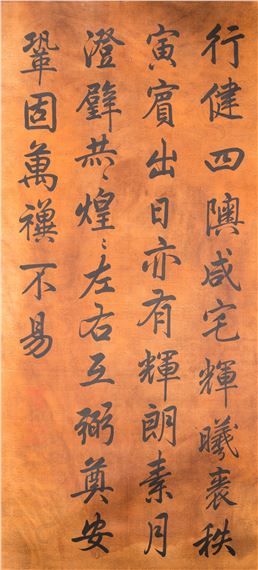 行健四隩咸宅輝曦裹秩
寅賓出日亦有輝朗素月
澄璧共〻煌〻左右互弼奠安
鞏固萬禩不易